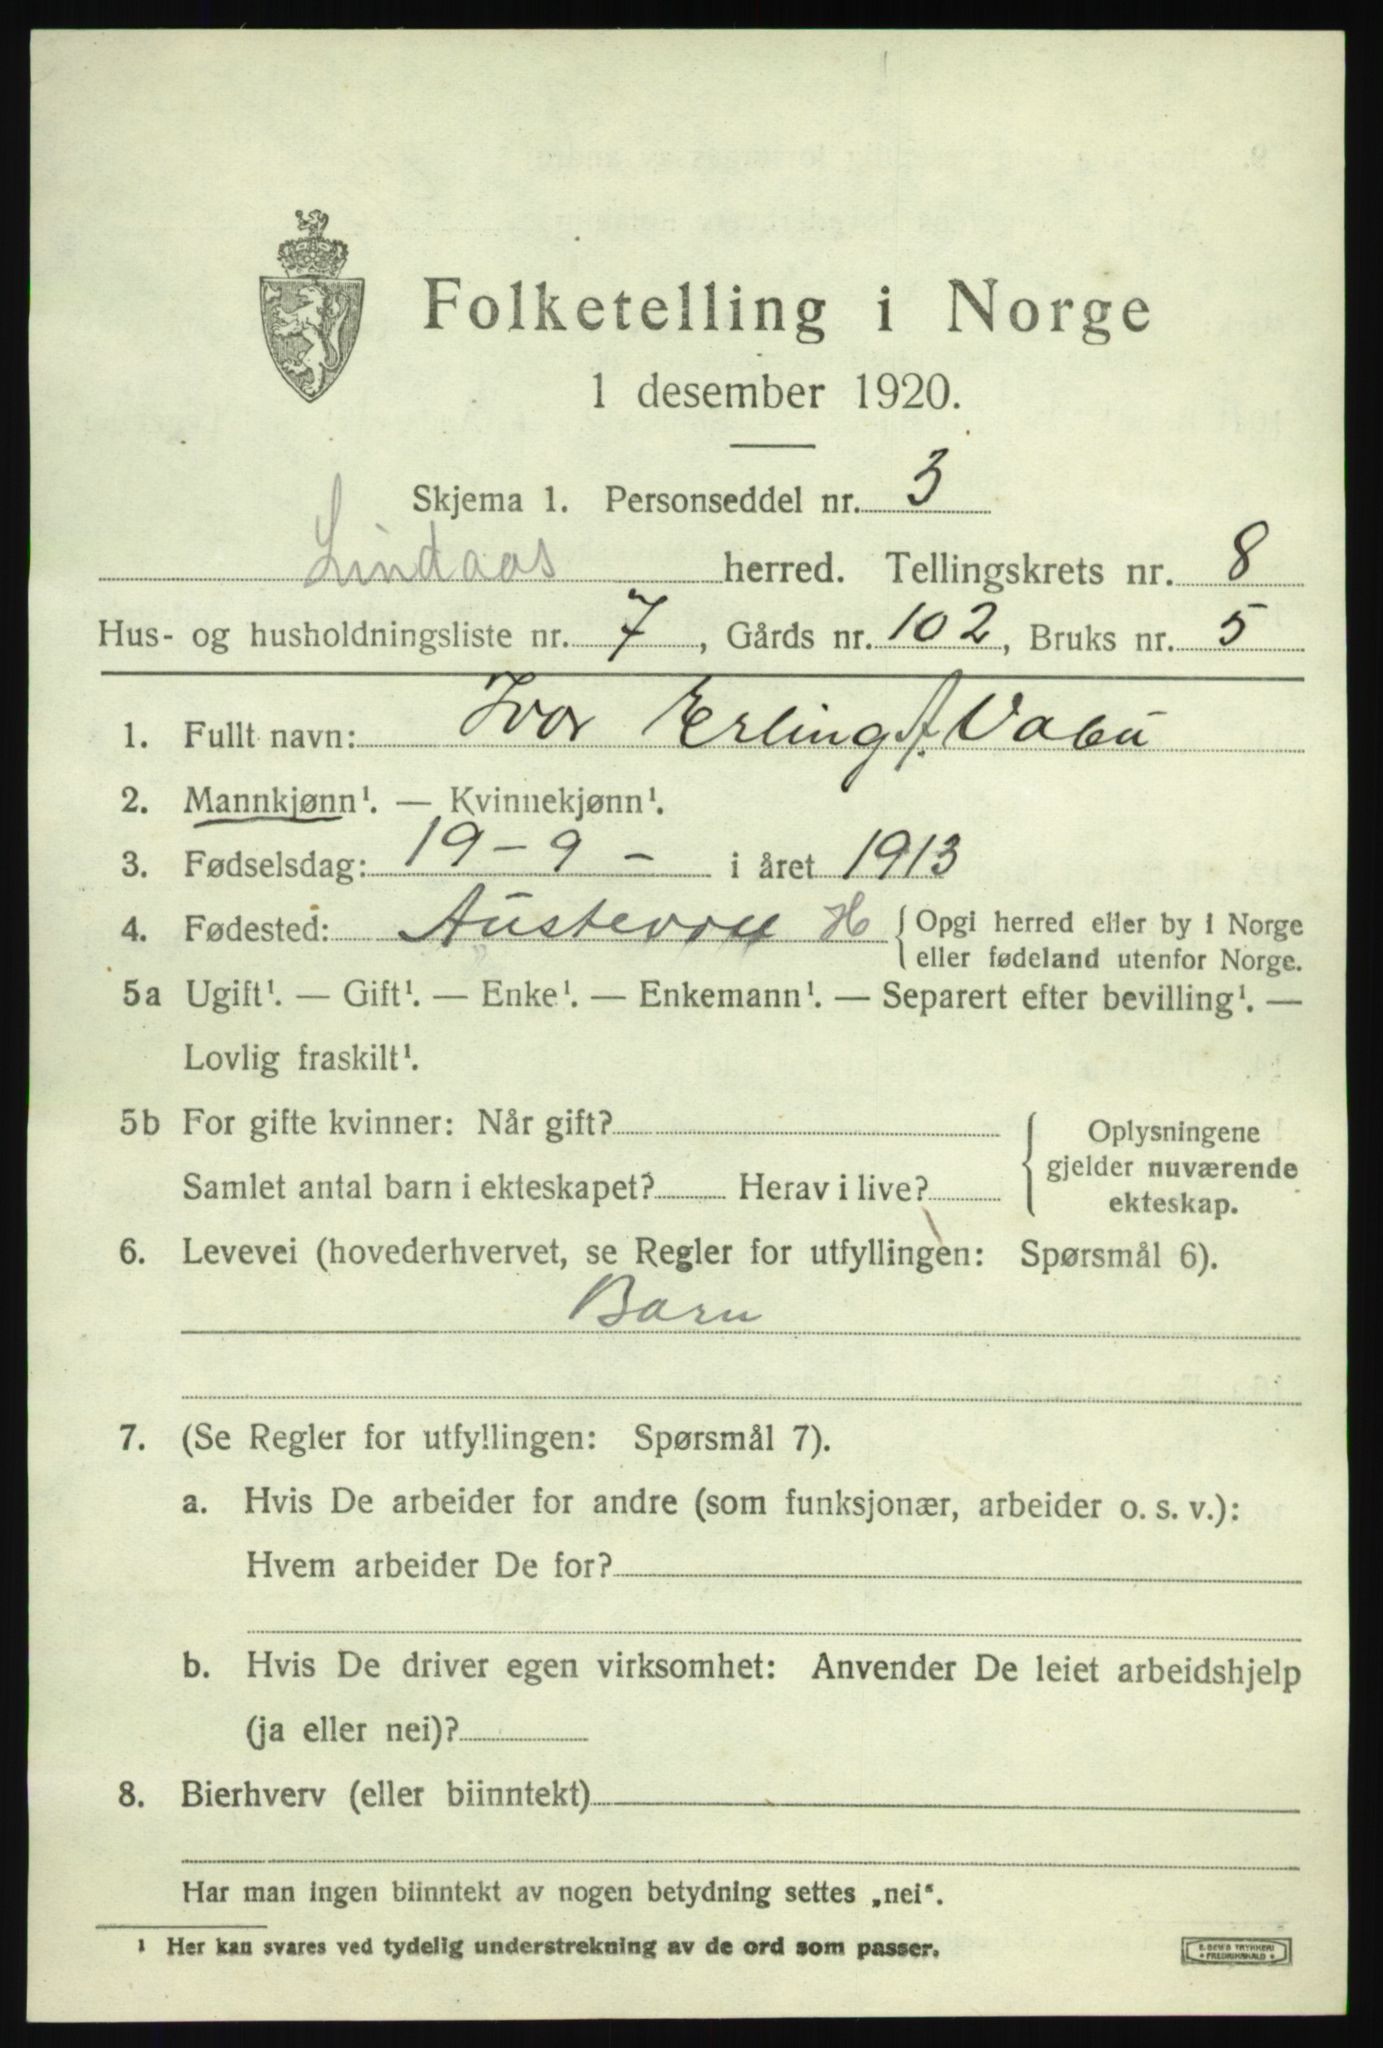 Folketelling i Norge
1 desember 1920.
Skjema 1. Personseddel nr. 3
Lindaas herred. Tellingskrets nr. 8
Hus- og husholdningsliste nr. 7, Gårds nr. 102, Bruks nr. 5
1. Fullt navn: Ivar Erling A. Vabü
2. Mannkjønn¹. — Kvinnekjønn¹.
3. Fødselsdag: 19-9- i året 1913
4. Fødested: Aüstevoll H { Opgi herred eller by i Norge
eller fødeland utenfor Norge.
5a Ugift¹. — Gift¹. — Enke¹. — Enkemann¹. — Separert efter bevilling¹. —
Lovlig fraskilt¹.
5b For gifte kvinner: Når gift?
Samlet antal barn i ekteskapet? Herav i live?
{ Oplysningene
gjelder nuværende
ekteskap.
6. Levevei (hovederhvervet, se Regler for utfyllingen: Spørsmål 6).
Barn
7. (Se Regler for utfyllingen: Spørsmål 7).
a. Hvis De arbeider for andre (som funksjonær, arbeider o. s. v.):
Hvem arbeider De for?
b. Hvis De driver egen virksomhet: Anvender De leiet arbeidshjelp
(ja eller nei)?
8. Bierhverv (eller biinntekt)
Har man ingen biinntekt av nogen betydning settes „nei“.
¹ Her kan svares ved tydelig understrekning av de ord som passer.
TRYKKERI
FREDRIKSHALD